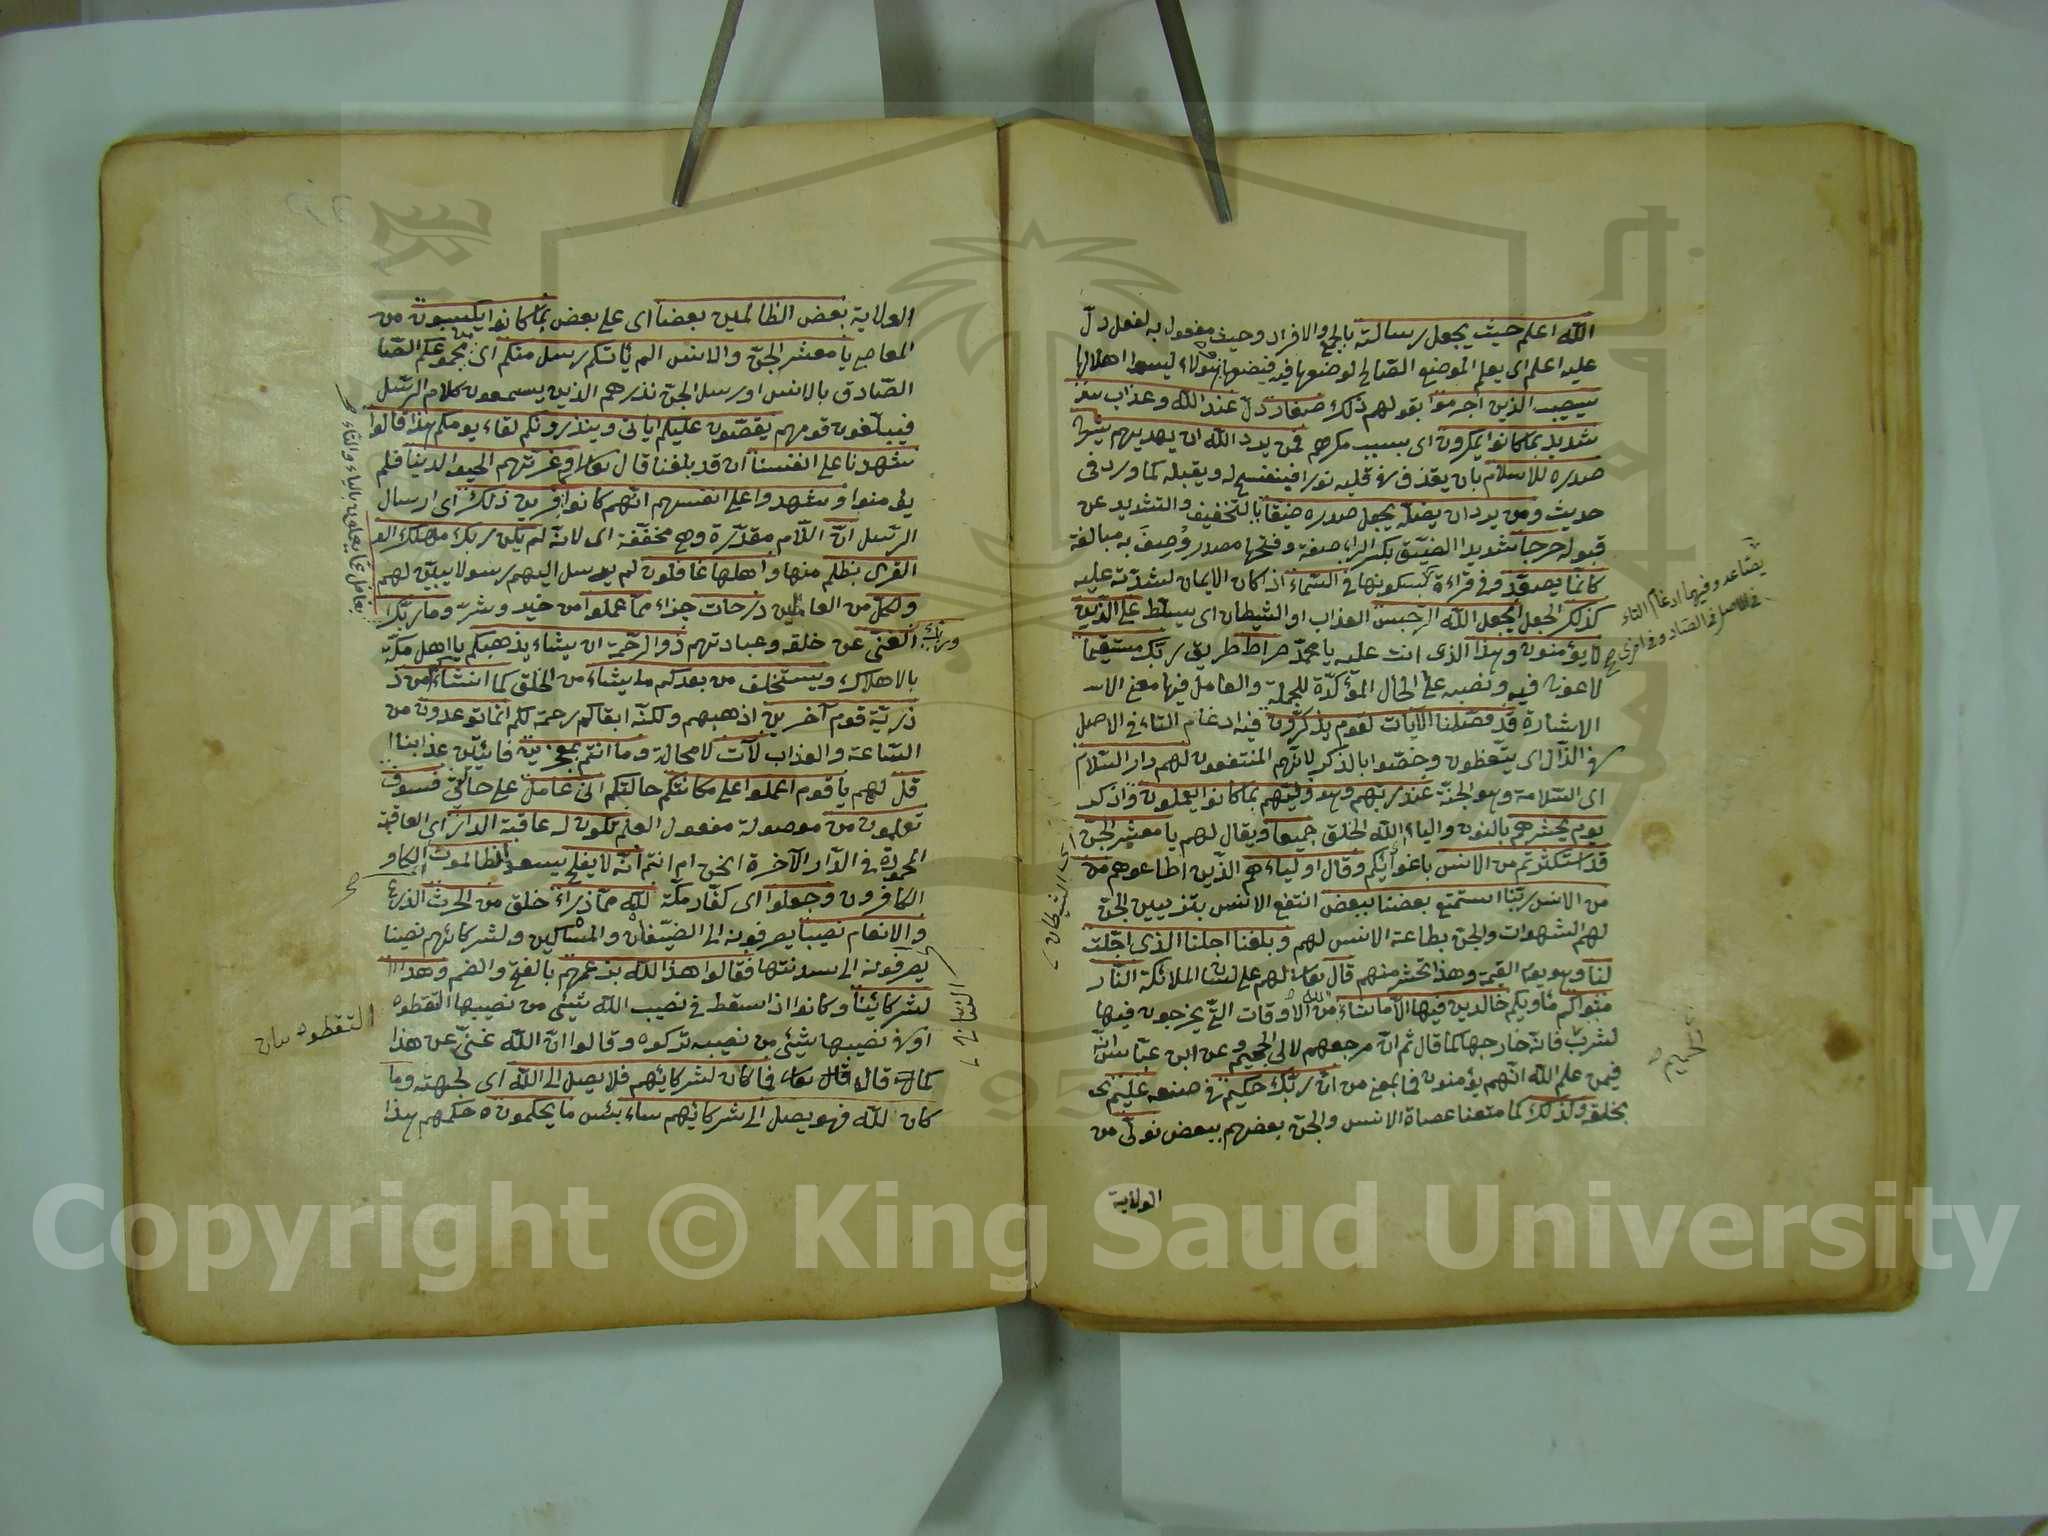 الله اعلم حيث يجعل رسالته بالجمع والافراد وحيث مفعول به لفعل دل
عليه اعلم اى يعلم الموضع الصالح لوضعها فيه فيضعها وهؤلاء ليسوا اهلا لها
سيصيب الذين اجرموا بقولهم ذلك صغار ذل عند الله وعذاب
شديد بما كانوا يمكرون اى بسبب مكرهم فمن يرد الله ان يهديه يشرح
صدره للاسلام بان يقذف فى قلبه نورا فينفسح له ويقبله كما ورد فى
حديث ومن يرد ان يضله يجعل صدره ضيقا بالتخفيف والتشديد عن
قبوله حرجا شديد الضيق بكسر الراء صفة وفتحها مصدر وُصِفَ به مبالغة
كانما يصعد وفى قراءة بسكونها فى السماء اذا كان الايمان لشدته عليه
يصاعد وفيها ادغام التاء
فى الاصل فى الصاد وفى اخرى صح
كذلك الجعل يجعل الله الرجس العذاب او الشيطان اى يسلط على الذين
لا يؤمنون وهذا الذى انت عليه يا محمد صراط طريق ربك مستقيما
لا عوج فيه ونصبه على الحال المؤكدة للجملة والعامل فيها معنى الاسـ
الاشارة قد فصلنا الآيات لقوم يذكرون فيه ادغام التاء فى الاصل
فى الذال اى يتعظون وخصوا بالذكر لانهم المنتفعون لهم دار السلام
اى السلامة وهو الجنة عند ربهم وهو وليهم بما كانوا يعملون واذكر
يوم يحشرهم بالنون والياء الله الخلق جميعا ويقال لهم يا معشر الجن
اى الشيطان
قد استكثرتم من الانس باغوائكم وقال اولياءهم الذين اطاعوهم من
من الانس ربنا استمتع بعضنا ببعض انتفع الانس بتزيين الجن
لهم الشهوات والجن بطاعة الانس لهم وبلغنا اجلنا الذى اجلت
لنا وهو يوم القيمة وهذا تحسر منهم قال تعالى لهم على لسان الملائكة النار
مثواكم مأويكم خالدين فيها الا ما شاء الله من الاوقات التى يخرجون فيها
لشرب فانه خارجها كما قال ثم ان مرجعهم لالى الجحيم وعن ابن عباس انه
الحميم صح
فيمن علم الله انهم يؤمنون فما بمعنى من ان ربك حكيم فى صنعه عليم
بخلقه وكذلك كما متعنا عصاة الانس والجن بعضهم ببعض نولى من
الولاية
الولاية بعض الظالمين بعضا اى على بعض بما كانوا يكسبون من
المعاصى يا معشر الجن والانس الم يأتكم رسل منكم اى من مجموعكم الصا
الصادق بالانس او رسل الجن نذرهم الذين يسمعون كلام الرسل
فيبلغون قومهم يقصون عليكم اياتى وينذرونكم لقاء يومكم هذا قالوا
شهدنا على انفسنا ان قد بلغنا قال تعالى وغرتهم الحيوة الدنيا فلم
يؤمنوا وشهدوا على انفسهم انهم كانوا كافرين ذلك اى ارسال
الرسل ان اللام مقدرة وهى مخففة اى لانه لم يكن ربك مهلك القـ
القرى بظلم منها واهلها غافلون لم يرسل اليهم رسولا يبين لهم
ولكل من العاملين درجات جزاء مما عملوا من خير وشر وما ربك
بغافل عما يعملون بالياء والتاء صح
وربك
الغنى عن خلقه وعبادتهم ذو الرحمة ان يشاء يذهبكم يا اهل مكة
بالاهلاك ويستخلف من بعدكم ما يشاء من الخلق كما انشاكم من ذ
ذرية قوم آخرين اذهبهم ولكنه ابقاكم رحمة لكم انما توعدون من
الساعة والعذاب لآت لا محالة وما انتم بمعجزين فائتين عذابنا
قل لهم يا قوم اعملوا على مكانتكم حالتكم انى عامل على حالتى فسوف
تعلمون من موصولة مفعول العلم تكون له عاقبة الدار اى العاقبة
المحمودة فى الدار الآخرة انحن ام انتم انه لا يفلح يسعد الظالمون الكافر
الكافرون وجعلوا اى كفار مكة لله مما ذرأ خلق من الحرث الزرع
والانعام نصيبا يصرفونه الى الضيفان والمساكين ولشركائهم نصيبا
يصرفونه الى سدنتها فقالوا هذا لله بزعمهم بالفتح والضم وهذا
لشركائنا وكانوا اذا سقط فى نصيب الله شيئ من نصيبها التقطوه
التقطوه بيان
او فى نصيبها شيئ من نصيبه تركوه وقالوا ان الله غنى عن هذا
كما قال تعالى فما كان لشركائهم فلا يصل الى الله اى لجهته وما
كان لله فهو يصل الى شركائهم ساء بئس ما يحكمون ه حكمهم هذا
Copyright © King Saud University